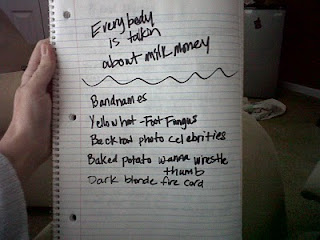 Everybody
is talkin
about milk money
Bandnames
Yellow hot - Foot Fungus
Back row photo celebrities
Baked potato wanna wrestle
thumb
Dark blonde fire cord